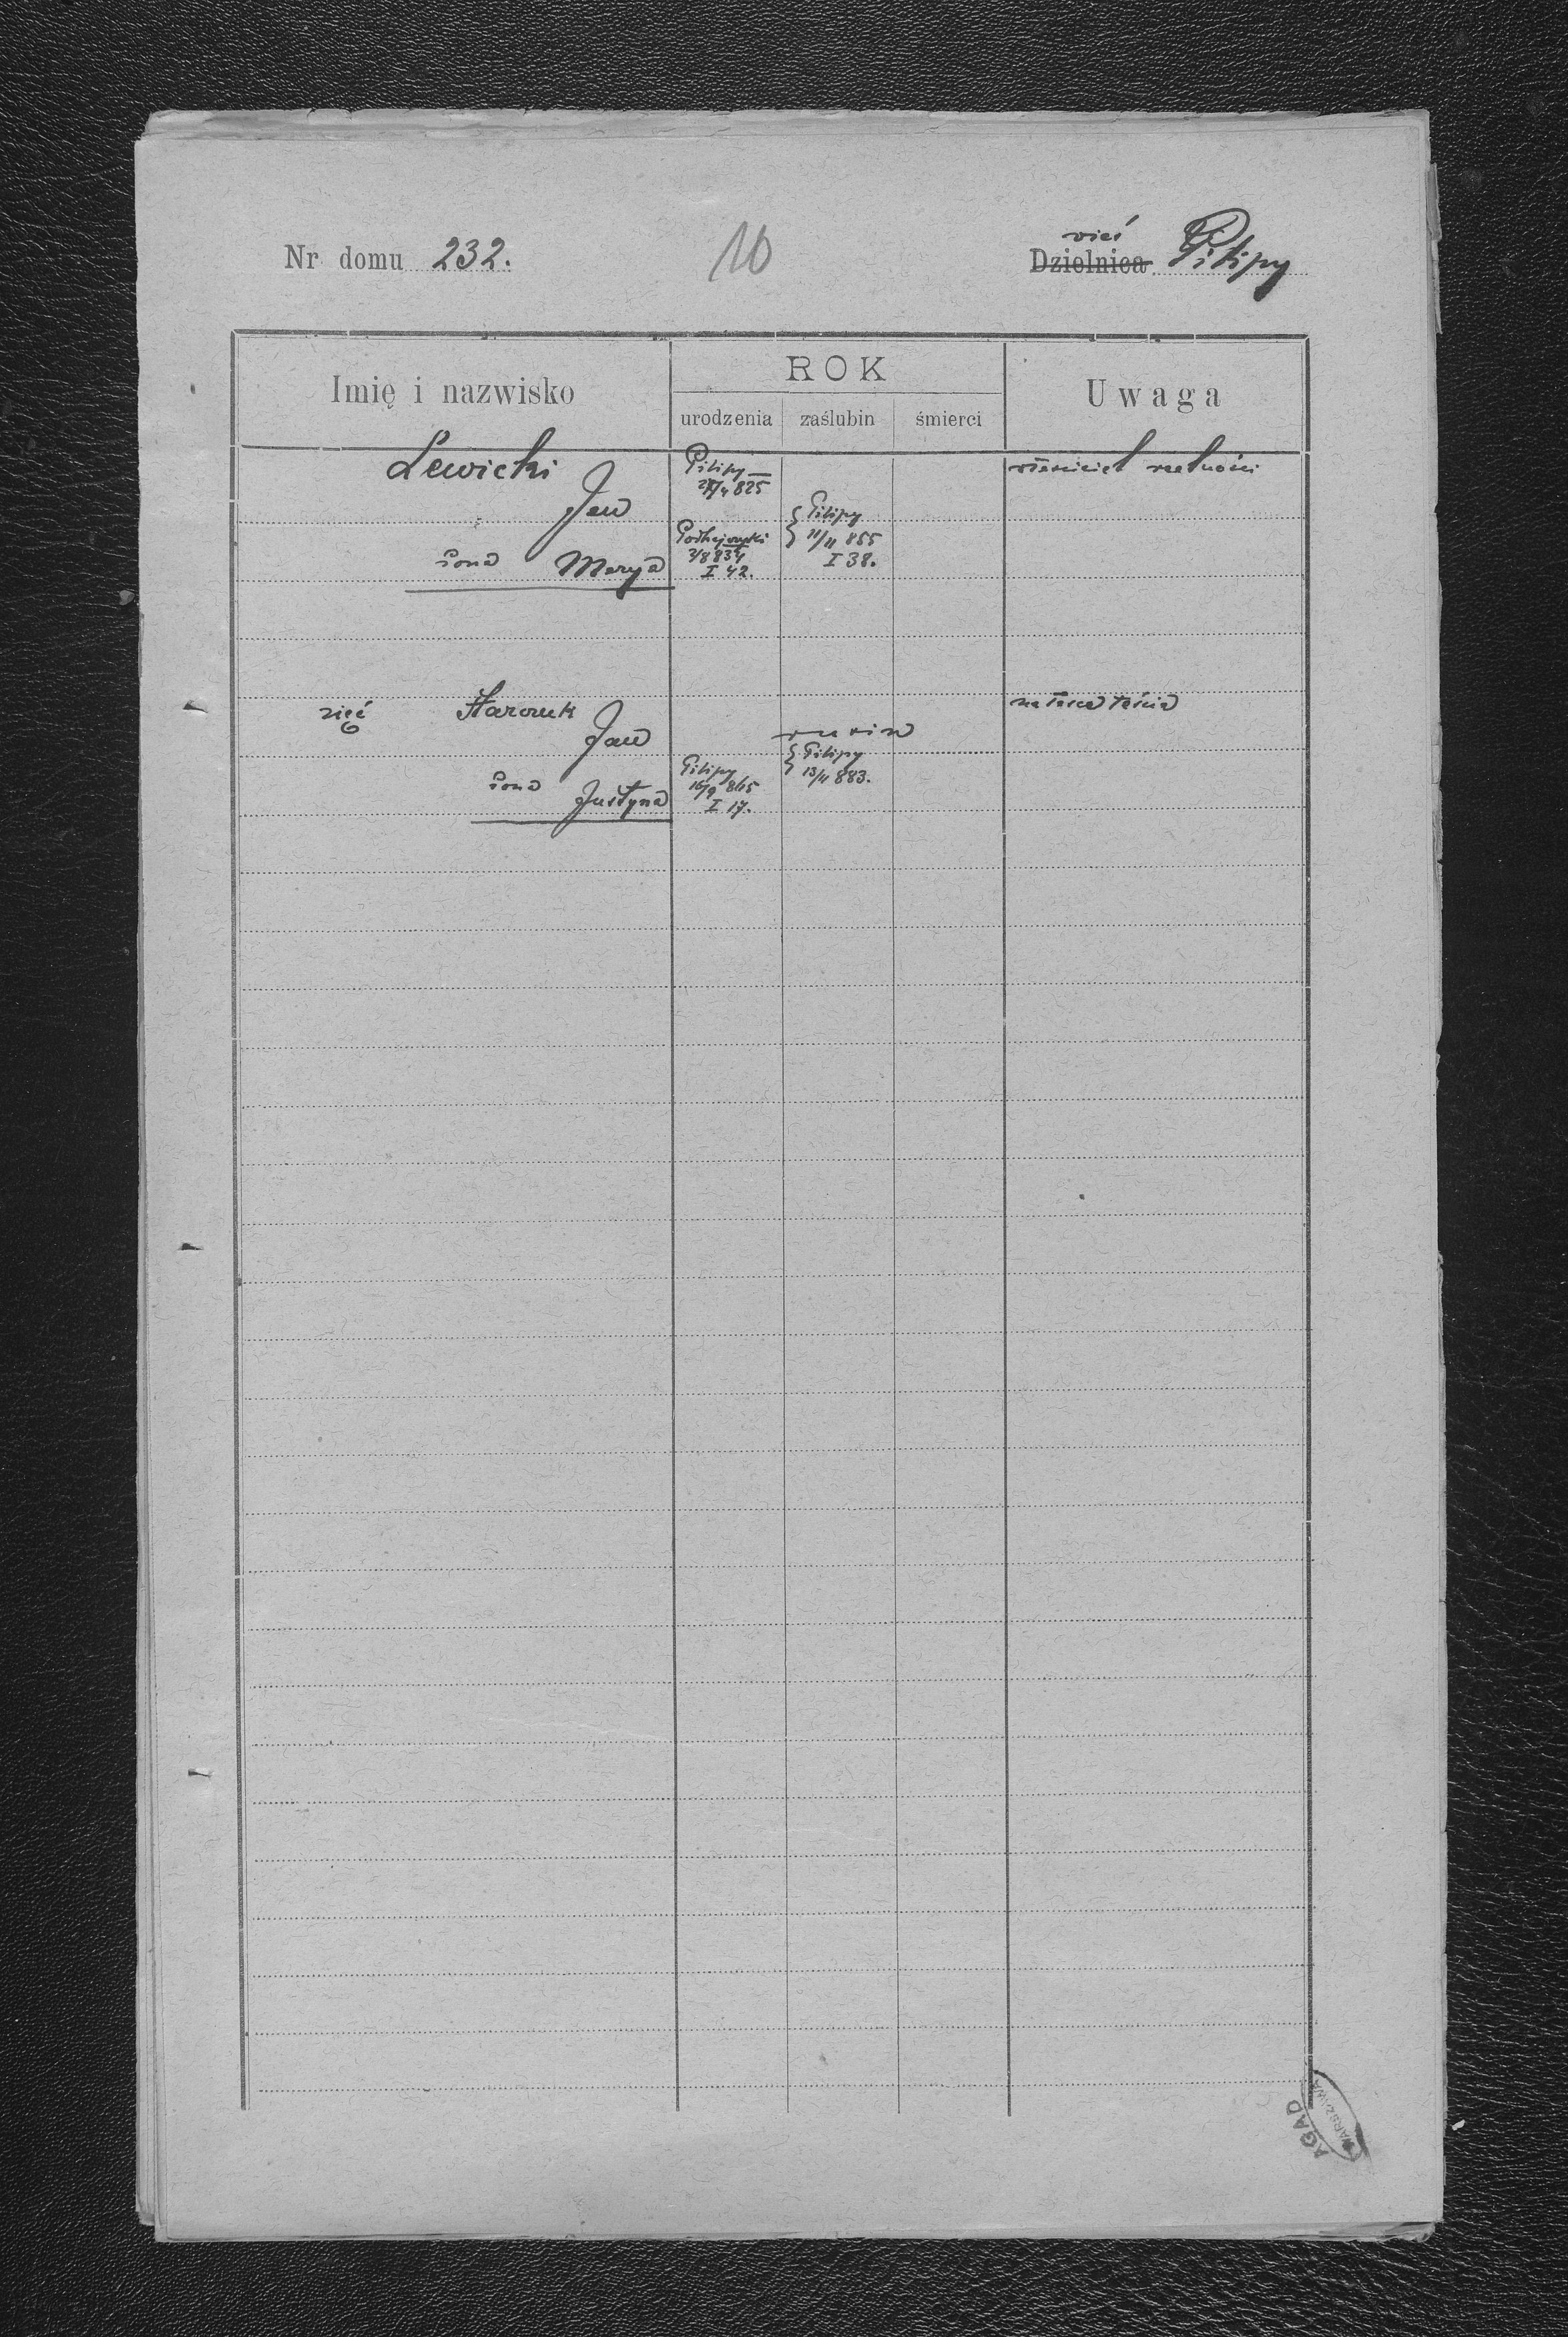 Nr domu 232.
10
wieś
Dzielnica Pilipy
Imię i nazwisko
ROK
urodzenia
zaślubin
śmierci
Uwaga
Lewicki
Jan
żona Marya
Pilipy
825
Podhajczyki
2/8 834
I 42.
Pilipy
11/11 855
I 38.
właściciel realności
zięć Harczuk
Jan
żona Justyna
Pilipy
16/9 865
I 17.
Pilipy
13/11 883.
teścia
AGAD
WARSZAWA